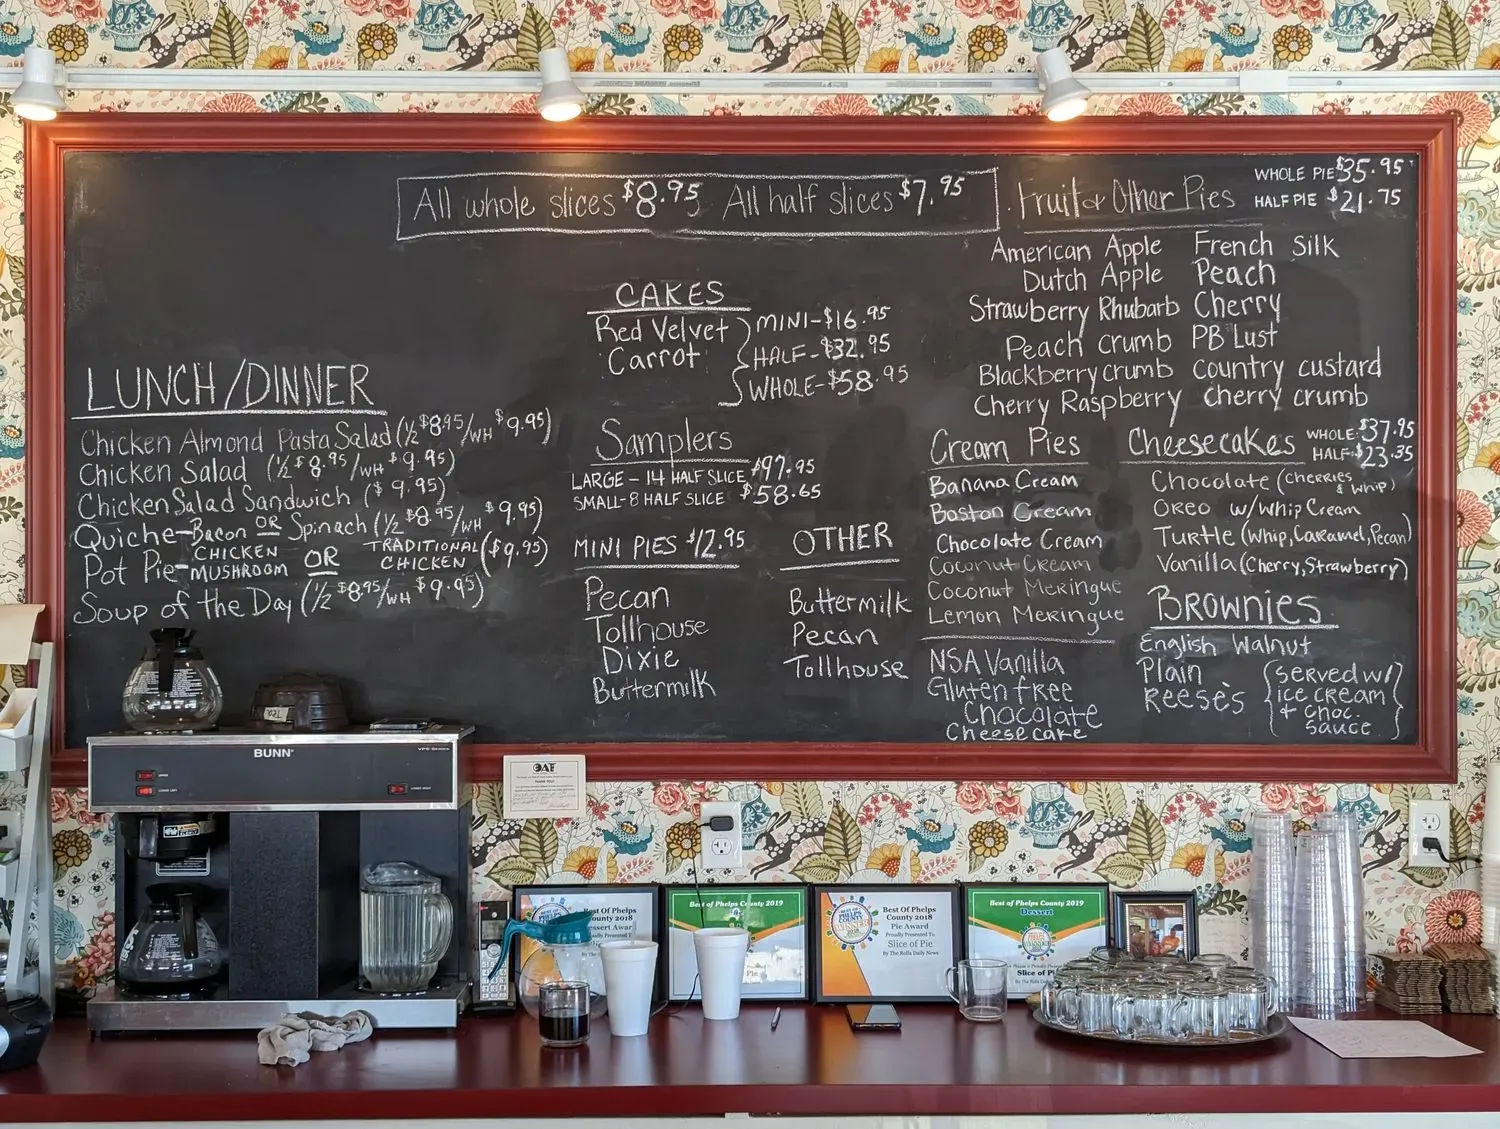 All whole slices $8.95 All half slices $7.95
Fruit & Other Pies
WHOLE PIE $35.95
HALF PIE $21.75
American Apple
Dutch Apple
Strawberry Rhubarb
Peach crumb
Blackberry crumb
Cherry Raspberry
French Silk
Peach
Cherry
PB Lust
Country custard
Cherry crumb
CAKES
Red Velvet
Carrot
MINI-$16.95
HALF-$32.95
WHOLE-$58.95
LUNCH/DINNER
Chicken Almond Pasta Salad (½ $8.95/WH $9.95)
Chicken Salad (½ $8.95/WH $9.95)
Chicken Salad Sandwich ($9.95)
Quiche-Bacon OR Spinach (½ $8.95/WH $9.95)
Pot Pie-CHICKEN MUSHROOM OR TRADITIONAL CHICKEN ($9.95)
Soup of the Day (½ $8.95/WH $9.95)
Samplers
LARGE - 14 HALF SLICE $97.95
SMALL - 8 HALF SLICE $58.65
MINI PIES $12.95
Pecan
Tollhouse
Dixie
Buttermilk
OTHER
Buttermilk
Pecan
Tollhouse
Cream Pies
Banana Cream
Boston Cream
Chocolate Cream
Coconut Cream
Coconut Meringue
Lemon Meringue
NSA Vanilla
Gluten free
Chocolate
Cheesecake
Cheesecakes
WHOLE: $37.95
HALF: $23.35
Chocolate (CHERRIES & WHIP)
OREO w/WHIP CREAM
Turtle (Whip, Caramel, Pecan)
Vanilla (Cherry, Strawberry)
BROWNIES
English Walnut
Plain
Reese's
(SERVED W/
ICE CREAM
& CHOC.
SAUCE)
BUNN
Tea
OATS
THANK YOU!
Best of Phelps
County 2018
Dessert Award
Best of Phelps County 2019
Pie
Best of Phelps
County 2018
Pie Award
Proudly Presented To
Slice of Pie
By The Rolla Daily News
Best of Phelps County 2019
Dessert
Slice of Pi